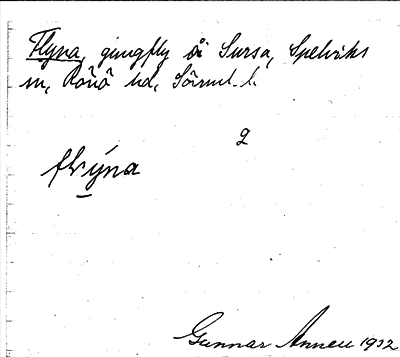 Flyna, gungfly å Sursa, Spelviks
sn, Rönö hd, Sörml.l.
2
flyna
Gunnar Anneu 1932